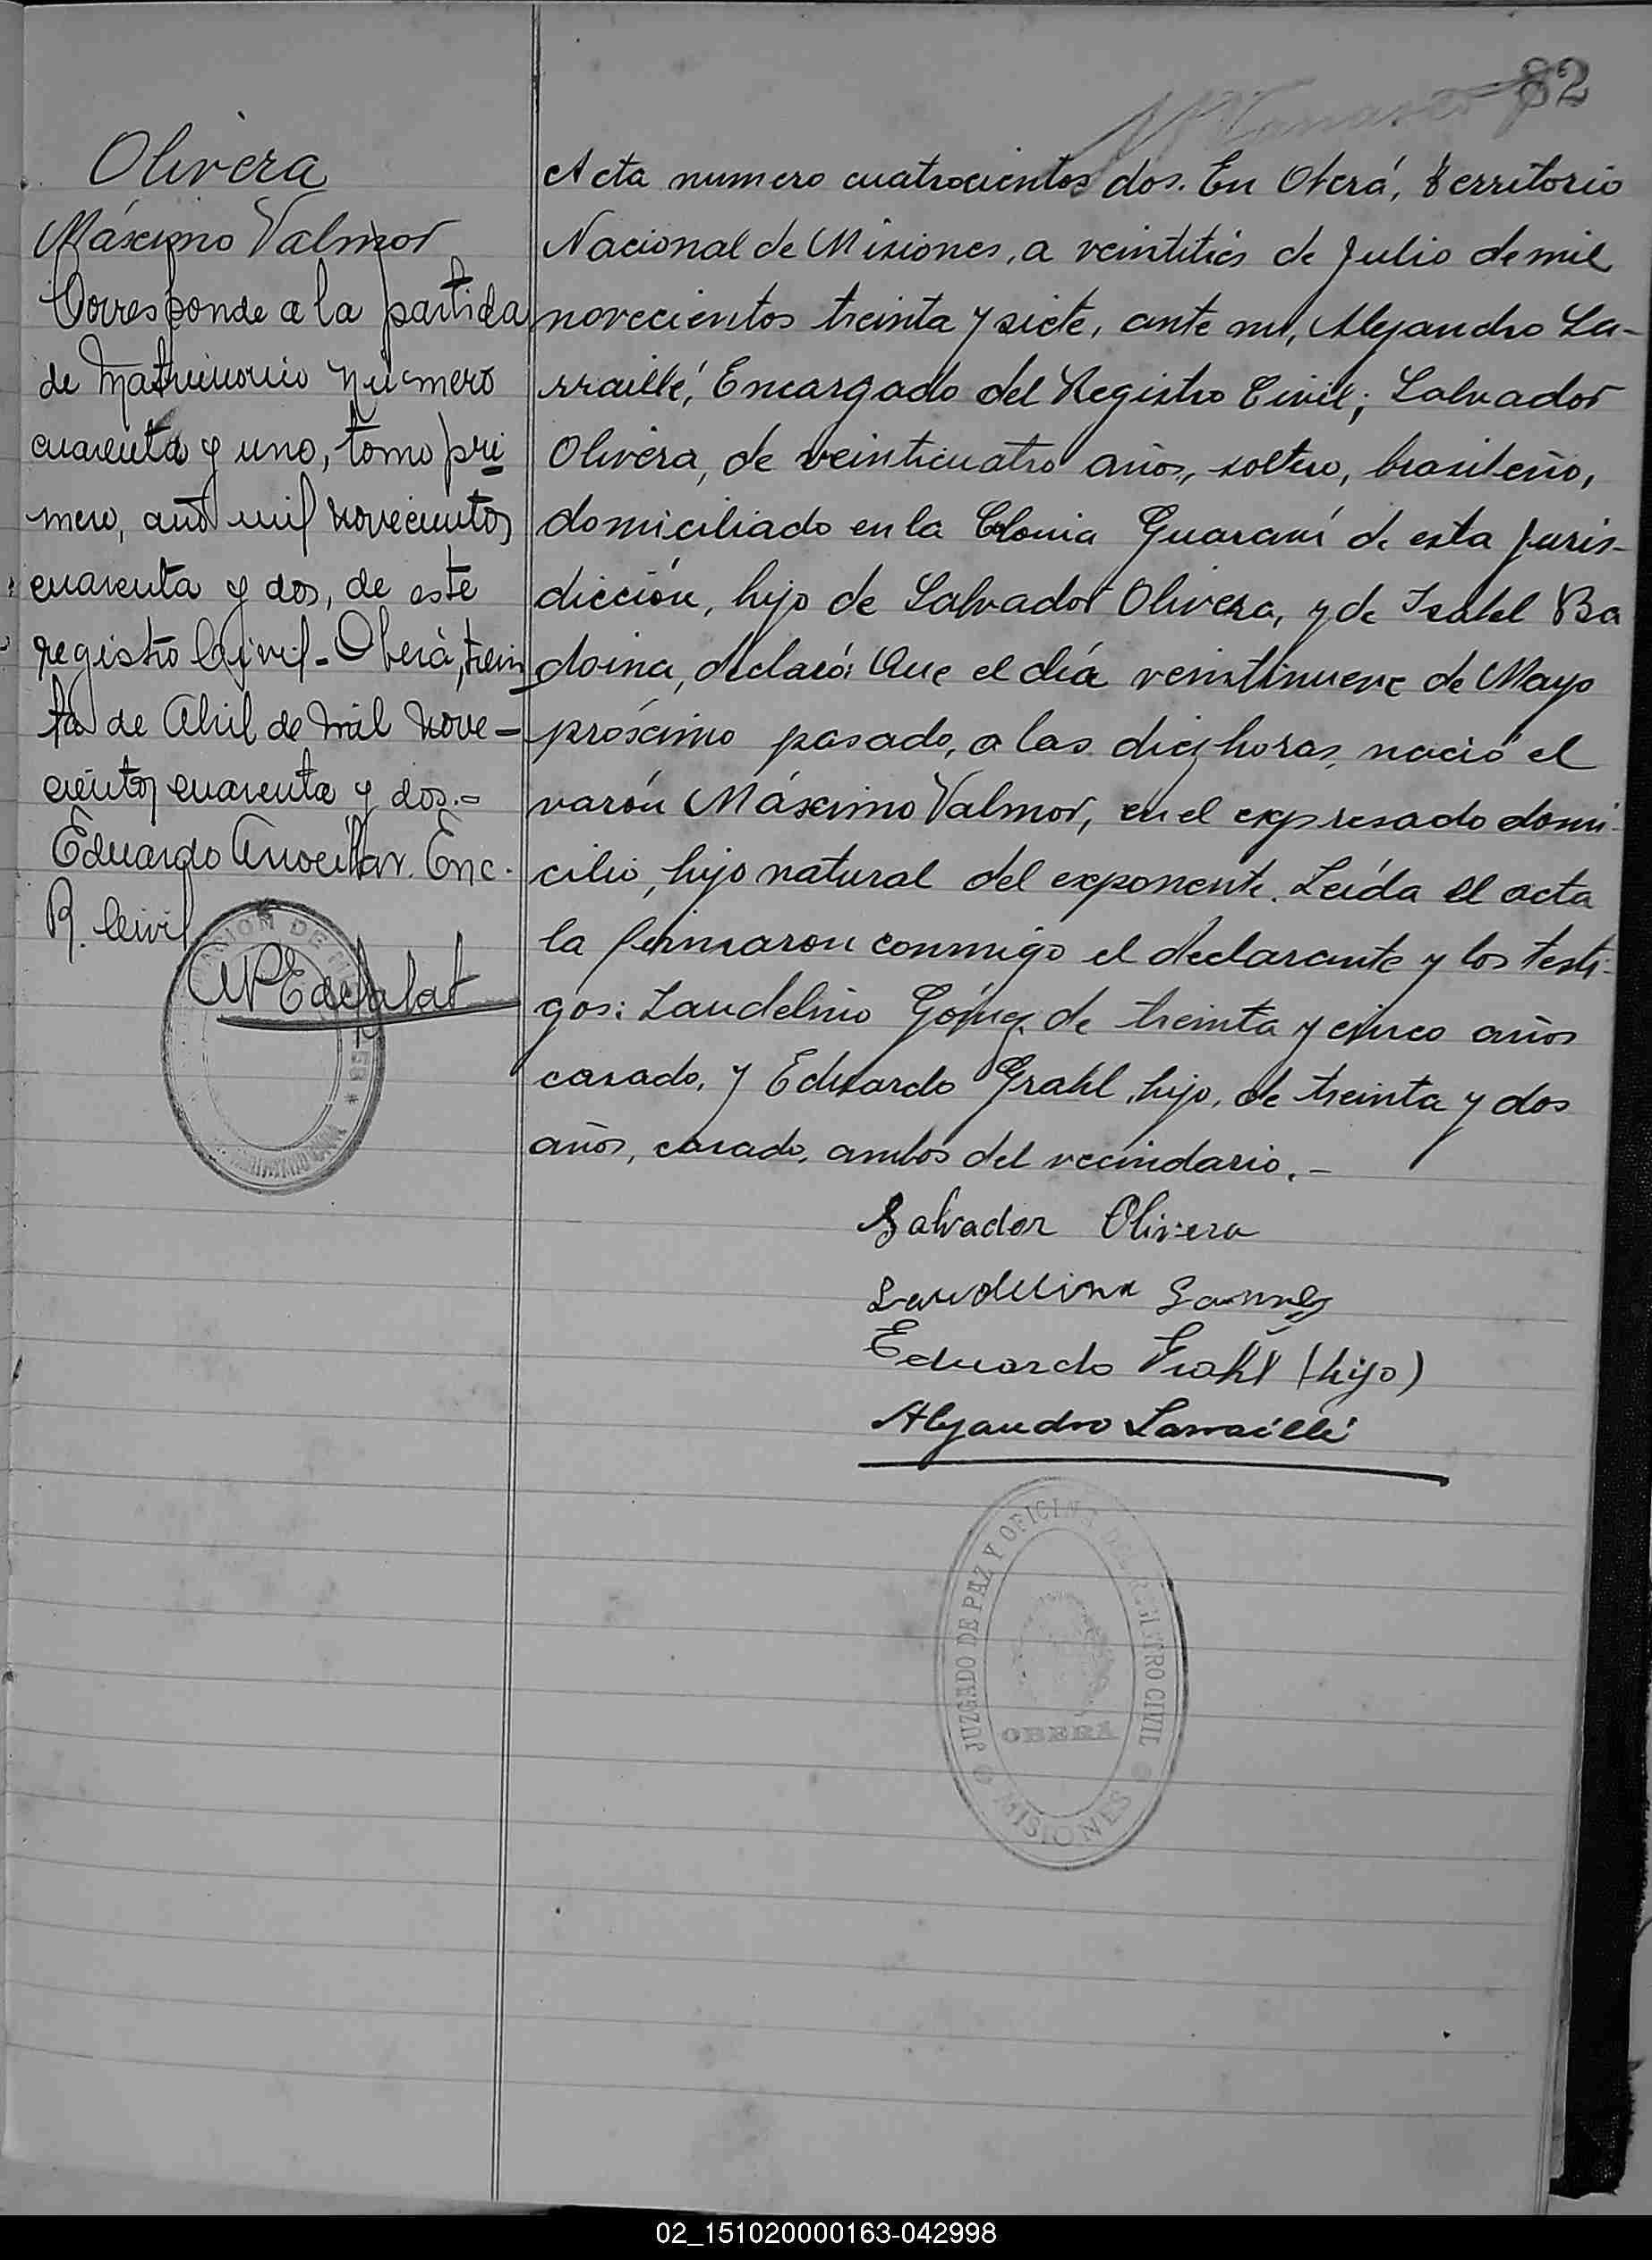 82
Olivera
Máximo Valmor
Corresponde a la partida
de Matrimonio número
cuarenta y uno, tomo pri
mero, año mil novecientos
cuarenta y dos, de este
registro Civil - Oberá, trein
ta de Abril de mil nove-
cientos cuarenta y dos.-
Eduardo Enc.
R. Civil
Acta numero cuatrocientos dos. En Oberá, territorio
Nacional de Misiones, a veintitrés de Julio de mil
novecientos treinta y siete, ante mi, Alejandro La-
rraillé, Encargado del Registro Civil; Salvador
Olivera, de veinticuatro años, soltero, brasileño,
domiciliado en la Colonia Guaraní de esta juris-
dicción, hijo de Salvador Olivera, y de Isabel Ba
doina, declaró: Que el día veintinueve de Mayo
próximo pasado, a las diez horas, nació el
varón Máximo Valmor, en el expresado domi-
cilio, hijo natural del exponente. Leída el acta
la firmaron conmigo el declarante y los testi-
gos: Laudelino Gómez de treinta y cinco años
casado, y Eduardo Grahl, hijo, de treinta y dos
años, casado, ambos del vecindario.-
Salvador Olivera
Eduardo Grahl (hijo)
Alejandro Larraillé
JUZGADO DE PAZ Y OFICINA DEL REGISTRO CIVIL
OBERA
MISIONES
02_151020000163-042998